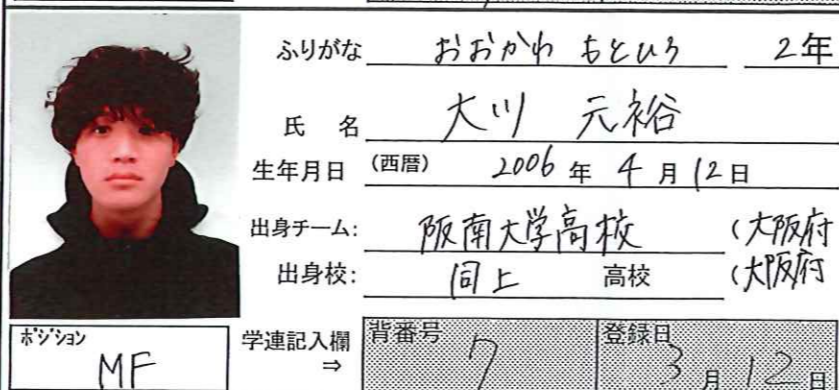 ふりがな おおかわ もとひろ 2年
氏 名 大川 元裕
生年月日 (西暦) 2006 年 4 月 12 日
出身チーム: 阪南大学高校 (大阪府
出身校: 同上 高校 (大阪府
ポジション MF
学連記入欄 ⇒
背番号 7
登録日 3 月 12 日